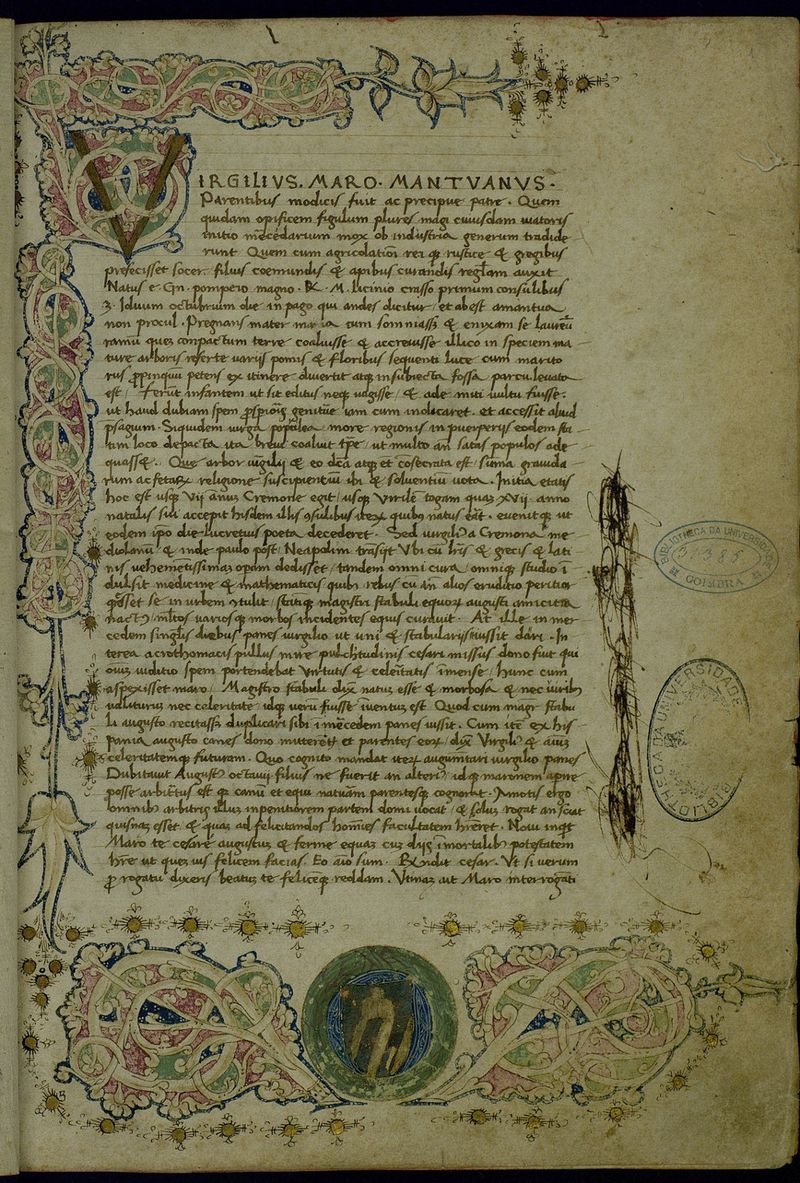 VIRGILIVS. MARO. MANTVANVS.
Parentibus modicis fuit ac precipue patre. Quem
quidam opificem figulum plures magi cuiusdam uiatoris
initio mercedarium mox ob industria generum tradide
runt Quem cum agricolationi rei qz rustice & gregibus
prefecisset socer filius coemundis & apibus curandis auxit
Natus e. Gn. pompeio magno. & M. licinio crasso primum consulibus
Iduum octubrium die in pago qui andes dicitur et abest amantua
non procul. Pregnans mater maia cum somniass & enixam se laureu
ramu quez conpactum terre coaluisse & accreuisse illico in speciem ma
ture arboris referte varijs pomis & floribus sequenti luce cum marito
rus propinquu petens ex itinere divertit atqz in subiecta fossa partu leuata
est / ferut infantem ut sit editus neqz uagisse / & adeo miti uultu fuisse.
ut haud dubiam spem iam tum indicaret. et accessit aliud
psagium. Siquidem uirga populea more regionis in puerperijs eodem sta
tim loco depacta ita breui coaluit tpe / ut multo an satas populos ade
quass. Que arbor uirgilij & eo dca atqz et cosecrata est / suma grauida
rum ac fetaz religione suscipientiu ibi & soluentiu uota. Initia etatis
hoc est usqz Vij anu Cremone egit / usqz Virile togam quaz XVij anno
natalis sui accepit hisdem illis 9sulibus itez quibus natus eat. euenitqz ut
eodem ipo die lucretius poeta decederet. Sed uirgilia Cremona me
diolanu & inde paulo post Neapolim trasijt Vbi cu lris & grecis & lati
nis uehemetissimaz opam dedisset / tandem omni cura omniqz studio i
dulsit medicine & mathematicis quibus rebus cu an alios eruditior peritior
esset se in urbem 9tulit / statiqz magistri stabuli equoz augusti amicitia
nact9 / mltos uariosqz morbos incidentes equis curauit. At ille in mer
cedem singlis diebus panes uirgilio ut uni & stabularijs iussit dari. In
terea acrothomacis pullus mire pulchtudinis cesari missus dono fuit qui
omiz iuditio spem portendebat Virtutis & celeitatis imense / hunc cum
aspexisset maro / Magistro stabuli dix natus esse & morbosa & nec uirib9
ualiturus nec celeritate idqz ueru fuisse iuentuz est Quod cum magr stabu
li augusto recitass duplicari sibi i mecedem panes iussit. Cum ite ex his
pania augusto canes dono mitteret et parentes eoz dix Virgili & aium
celeritatemqz futuram. Quo cognito mandat itez augmitari uirgilio panes
Dubitauit August octauij filius ne fuerit an alteri9 idqz maronem apire
posse arbitratus est qz canu et equi natuam parentesqz cognorat. Amotis ergo
omnib9 arbitris illuz in penitiorem partem domi uocat / & solus rogat an sciat
quisnaz esset & quaz ad felicitandos homies facultatem hreret. Noui inqt
Maro te cesare augustuz & ferme equaz cuz dijs imortalib9 potestatem
hre ut quez uis felicem facias. Eo aio sum. Respondit cesar. Vt si uerum
p rogatu dixeris beatuz te feliceqz reddam. Vtinaz ait Maro interrogati
BIBLIOTHECA DA UNIVERSIDADE
COIMBRA
BIBLIOTECA DA UNIVERSIDADE